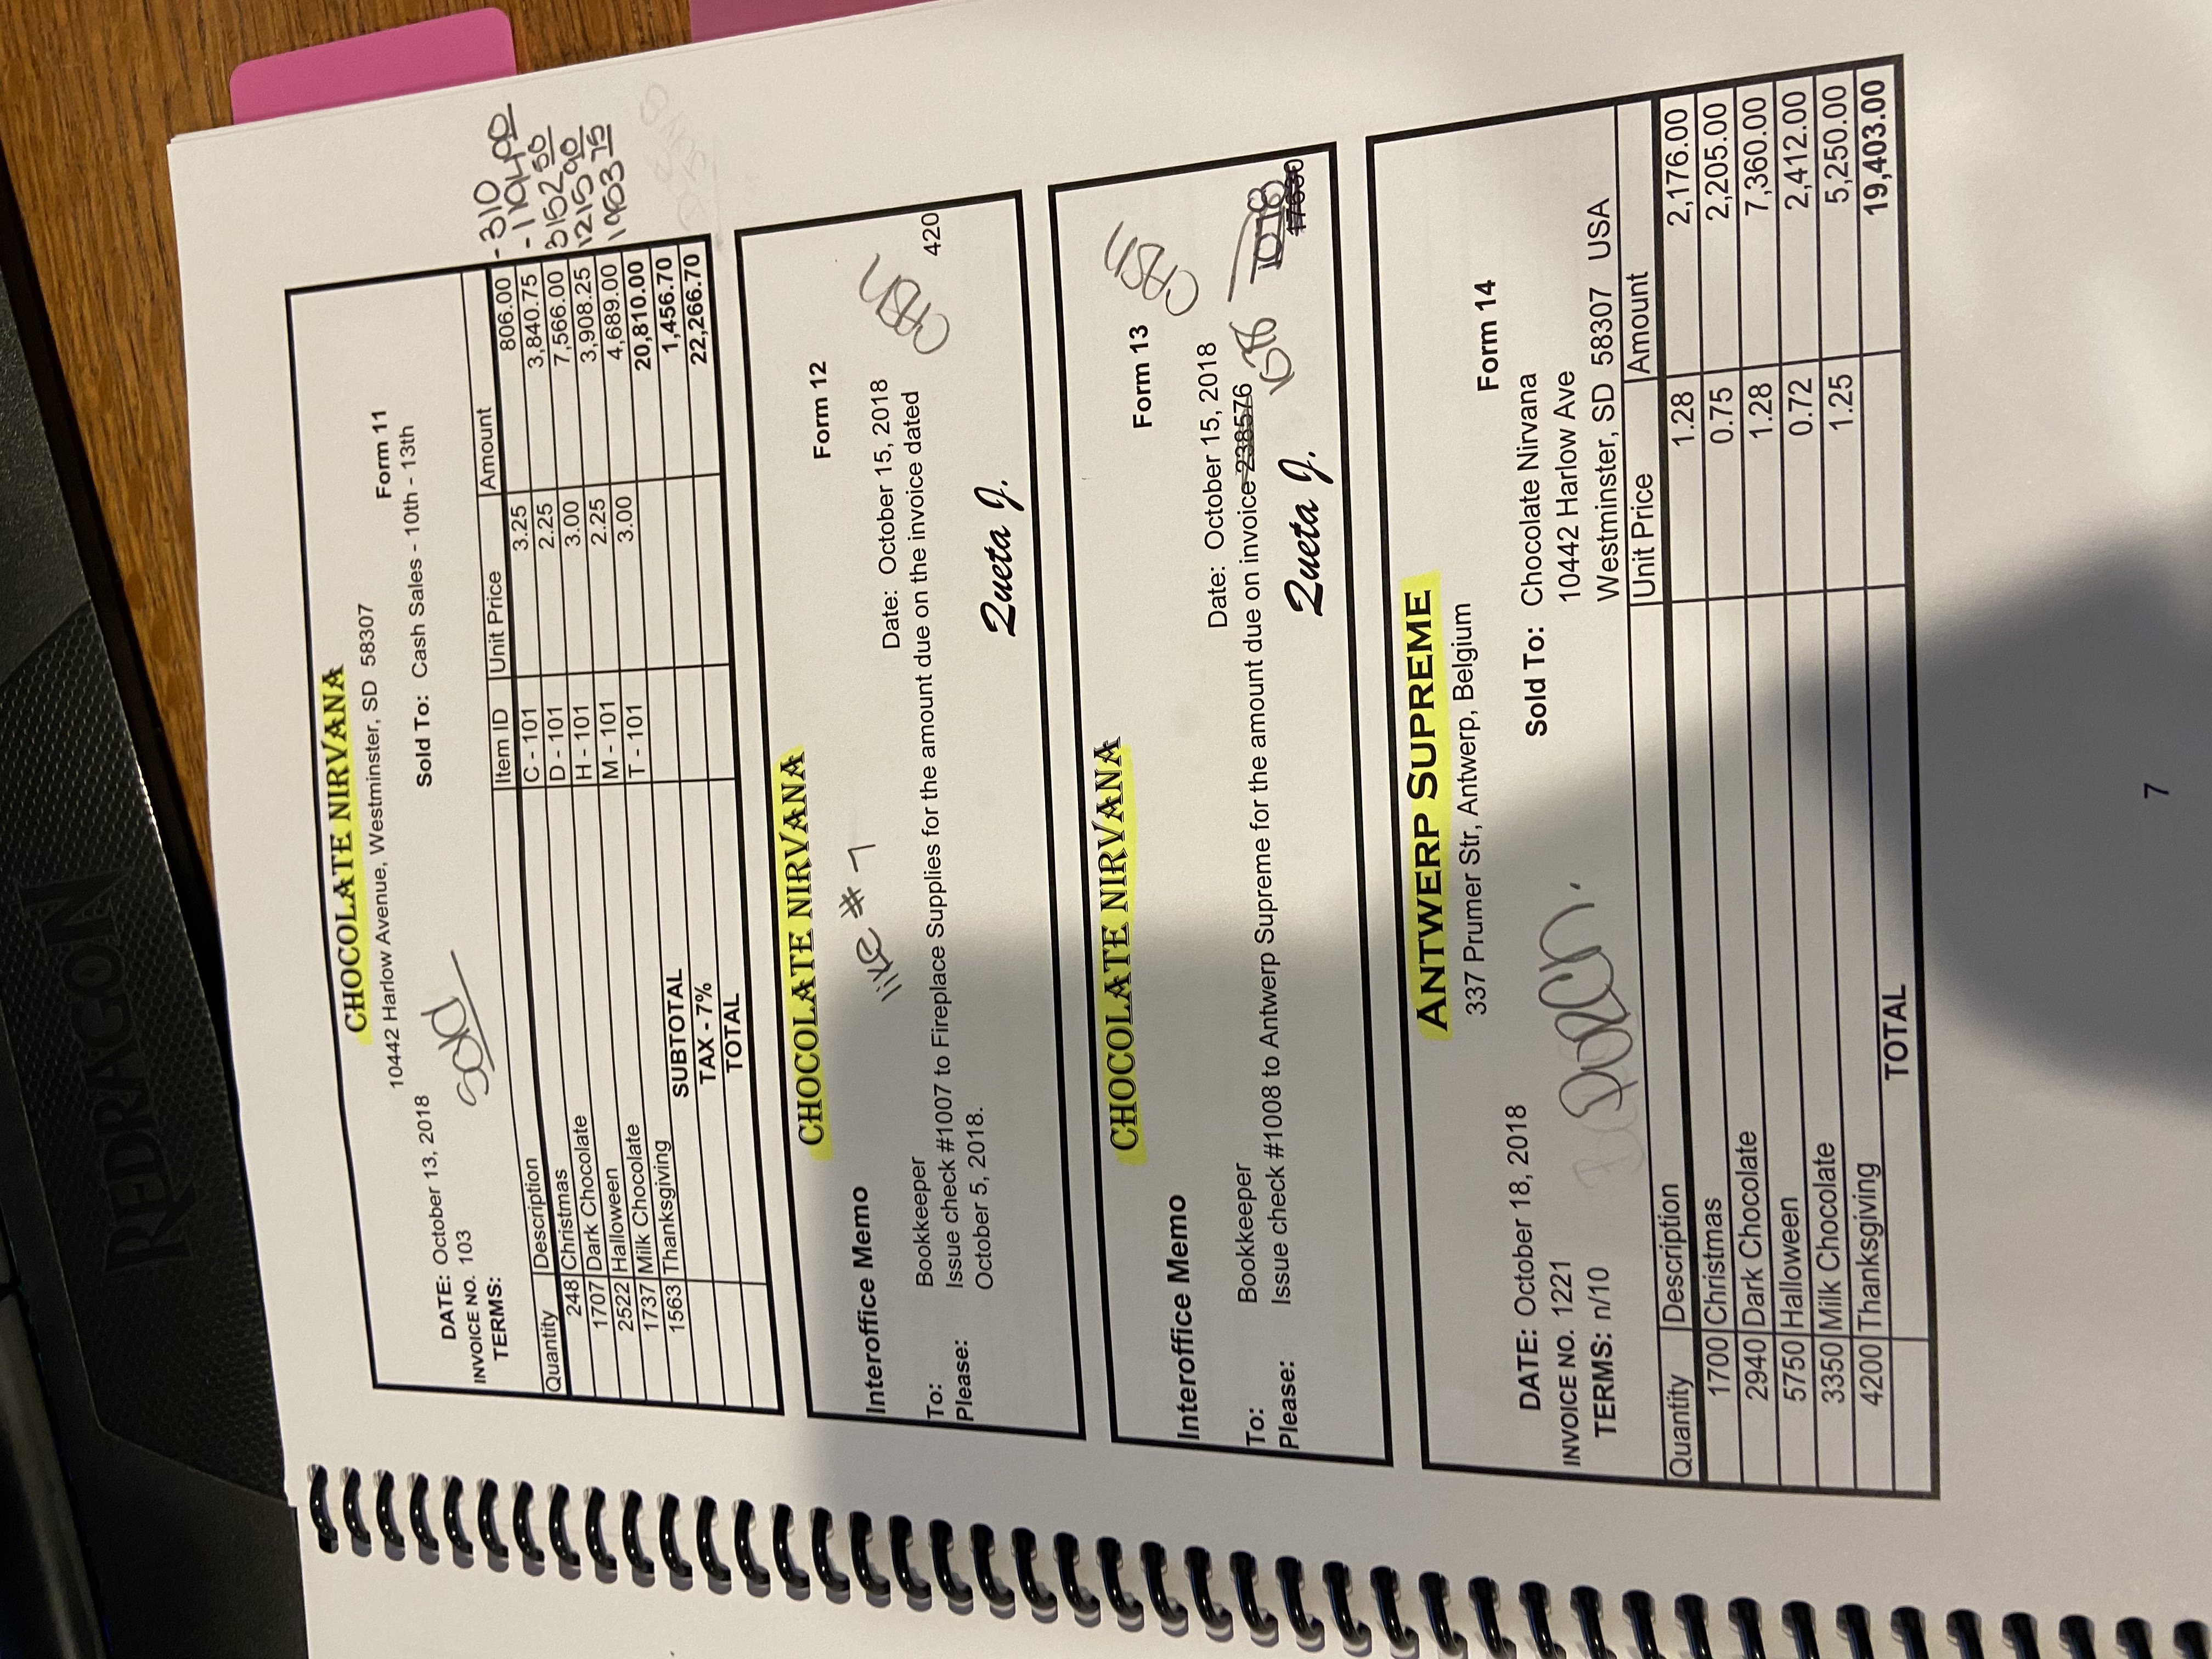 REDRAGON
CHOCOLATE NIRVANA
10442 Harlow Avenue, Westminster, SD 58307
Form 11
DATE: October 13, 2018 Sold To: Cash Sales - 10th - 13th
INVOICE NO. 103 sold
TERMS:
Quantity Description Item ID Unit Price Amount
248 Christmas C - 101 3.25 806.00 -310
1707 Dark Chocolate D - 101 2.25 3,840.75 -1194 90
2522 Halloween H - 101 3.00 7,566.00 3152 50
1737 Milk Chocolate M - 101 2.25 3,908.25 1215 90
1563 Thanksgiving T - 101 3.00 4,689.00 1953 75
SUBTOTAL 20,810.00
TAX - 7% 1,456.70
TOTAL 22,266.70
CHOCOLATE NIRVANA
Form 12
Interoffice Memo like #7
Date: October 15, 2018 CASH
To: Bookkeeper
Please: Issue check #1007 to Fireplace Supplies for the amount due on the invoice dated 420
October 5, 2018.
Zueta J.
CHOCOLATE NIRVANA
Form 13 CASH
Interoffice Memo
Date: October 15, 2018
To: Bookkeeper
Please: Issue check #1008 to Antwerp Supreme for the amount due on invoice 238576 1086
Zueta J.
ANTWERP SUPREME
337 Prumer Str, Antwerp, Belgium
Form 14
DATE: October 18, 2018 Sold To: Chocolate Nirvana
INVOICE NO. 1221 10442 Harlow Ave
TERMS: n/10 Westminster, SD 58307 USA
Quantity Description Unit Price Amount
1700 Christmas 1.28 2,176.00
2940 Dark Chocolate 0.75 2,205.00
5750 Halloween 1.28 7,360.00
3350 Milk Chocolate 0.72 2,412.00
4200 Thanksgiving 1.25 5,250.00
TOTAL 19,403.00
7